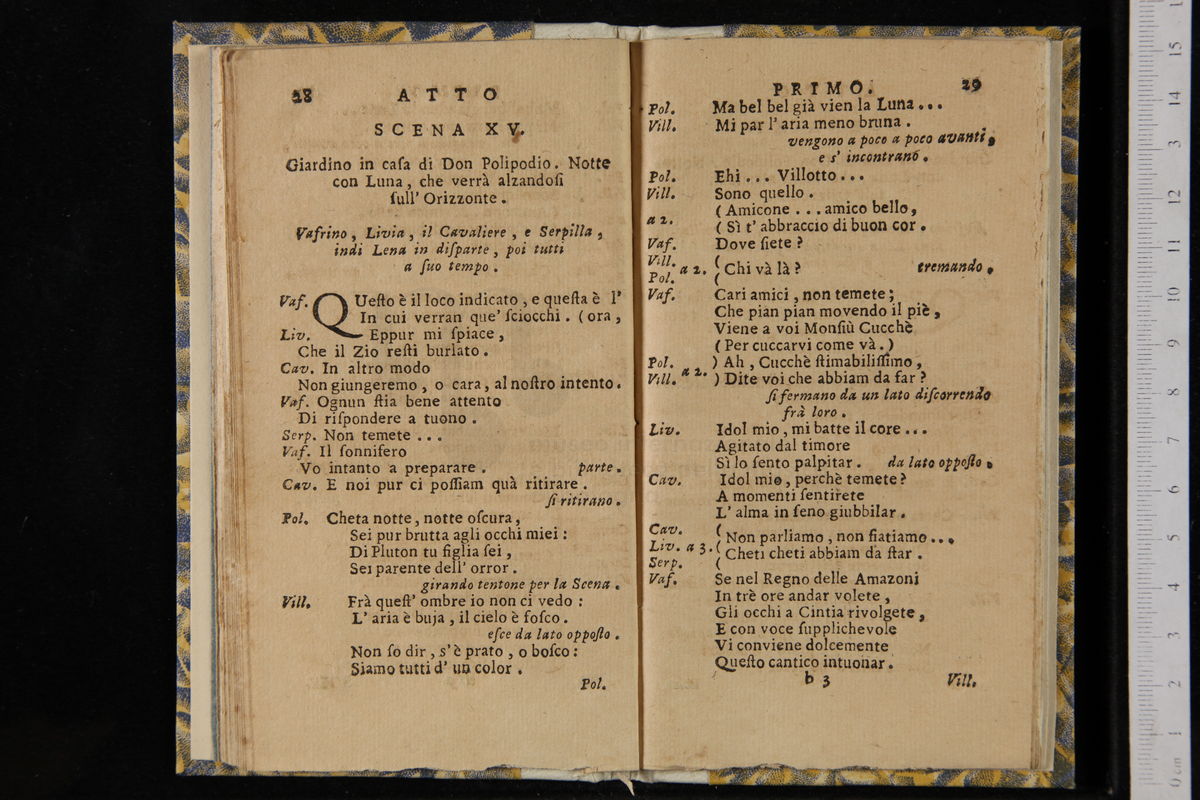 28 ATTO
SCENA XV.
Giardino in caſa di Don Polipodio. Notte
con Luna, che verrà alzandoſi
ſull' Orizzonte.
Vafrino, Livia, il Cavaliere, e Serpilla,
indi Lena in diſparte, poi tutti
a ſuo tempo.
Vaf. QUeſto è il loco indicato, e queſta è l'
In cui verran que' ſciocchi. (ora,
Liv. Eppur mi ſpiace,
Che il Zio reſti burlato.
Cav. In altro modo
Non giungeremo, o cara, al noſtro intento.
Vaf. Ognun ſtia bene attento
Di riſpondere a tuono.
Serp. Non temete ...
Vaf. Il ſonnifero
Vo intanto a preparare. parte.
Cav. E noi pur ci poſſiam quà ritirare.
ſi ritirano.
Pol. Cheta notte, notte oſcura,
Sei pur brutta agli occhi miei:
Di Pluton tu figlia ſei,
Sei parente dell' orror.
girando tentone per la Scena.
Vill. Frà queſt' ombre io non ci vedo:
L' aria è buja, il cielo è foſco.
eſce da lato oppoſto.
Non ſo dir, s'è prato, o boſco:
Siamo tutti d' un color.
Pol.
PRIMO. 29
Pol. Ma bel bel già vien la Luna...
Vill. Mi par l' aria meno bruna.
vengono a poco a poco avanti,
e s' incontrano.
Pol. Ehi... Villotto...
Vill. Sono quello.
a 2. ( Amicone ... amico bello,
( Sì t' abbraccio di buon cor.
Vaf. Dove ſiete?
Vill. Pol. a 2. ( Chi và là? tremando.
Vaf. Cari amici, non temete;
Che pian pian movendo il piè,
Viene a voi Monſiù Cucchè
(Per cuccarvi come và.)
Pol. Vill. a 2. ) Ah, Cucchè ſtimabiliſſimo,
) Dite voi che abbiam da far?
ſi fermano da un lato diſcorrendo
frà loro.
Liv. Idol mio, mi batte il core...
Agitato dal timore
Sì lo ſento palpitar. da lato oppoſto.
Cav. Idol mio, perchè temete?
A momenti ſentirete
L' alma in ſeno giubbilar.
Cav. Liv. Serp. a 3. ( Non parliamo, non fiatiamo...
( Cheti cheti abbiam da ſtar.
Vaf. Se nel Regno delle Amazoni
In trè ore andar volete,
Gli occhi a Cintia rivolgete,
E con voce ſupplichevole
Vi conviene dolcemente
Queſto cantico intuonar.
b 3 Vill.
0 cm 1 2 3 4 5 6 7 8 9 10 11 12 13 14 15